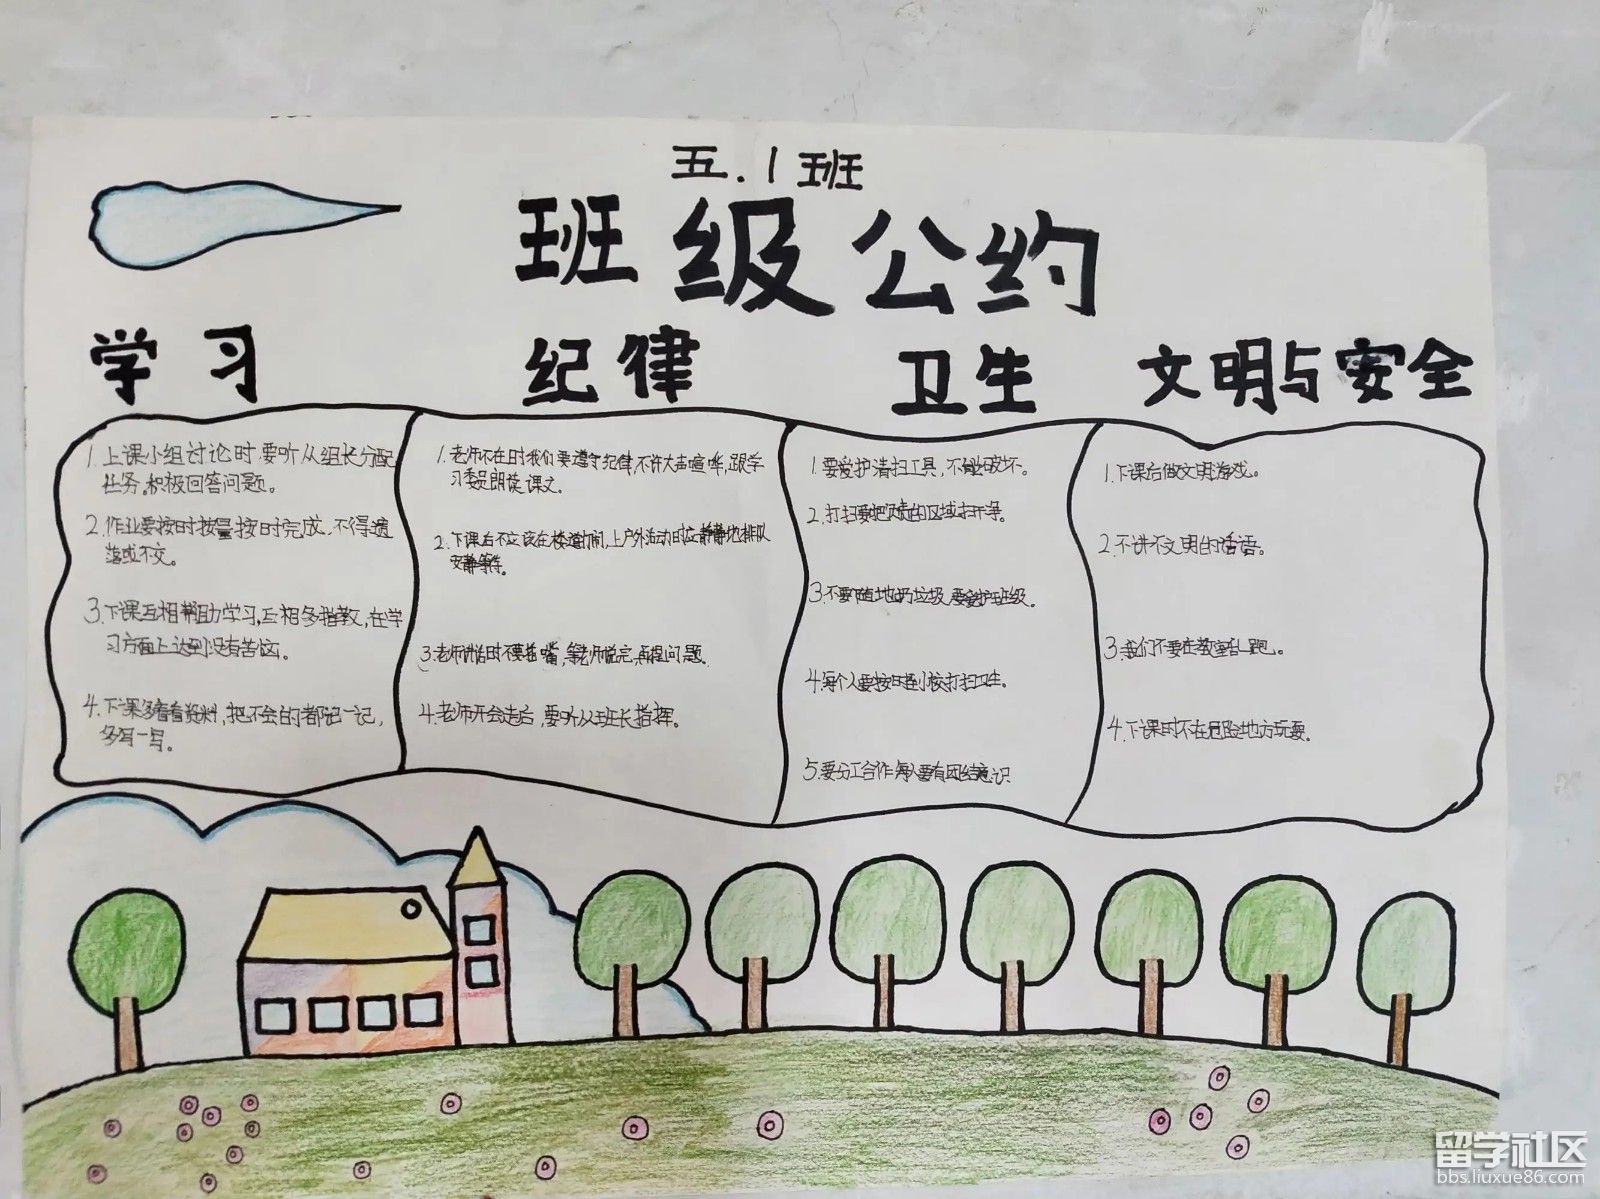 五.1班
班级公约
学习
纪律
卫生
文明与安全
1.上课小组讨论时,要听从组长分配
任务。积极回答问题。
2.作业要按时按量按时完成,不得遗
落或不交。
3.下课互相帮助学习,互相多指教,在学
习方面上达到没有苦恼。
4.下课多看看资料,把不会的都记一记,
多写一写。
1.老师不在时我们要遵守纪律,不许大声喧哗,跟学
习委员朗读课文。
2.下课后不应该在楼道打闹,上户外活动时应静静地排队
安静等待。
3.老师讲话时不要插嘴,等老师说完,再提问题。
4.老师开会走后,要听从班长指挥。
1.要爱护清扫工具,不做破坏。
2.打扫要把负责的区域扫干净。
3.不要随地扔垃圾,要爱护班级。
4.每个人要按时到校打扫卫生。
5.要分工合作每人要有团结意识
1.下课后做文明游戏。
2.不讲不文明的话语。
3.我们不要在教室乱跑。
4.下课时不在危险地方玩耍。
留学社区
bbs.liuxue86.com